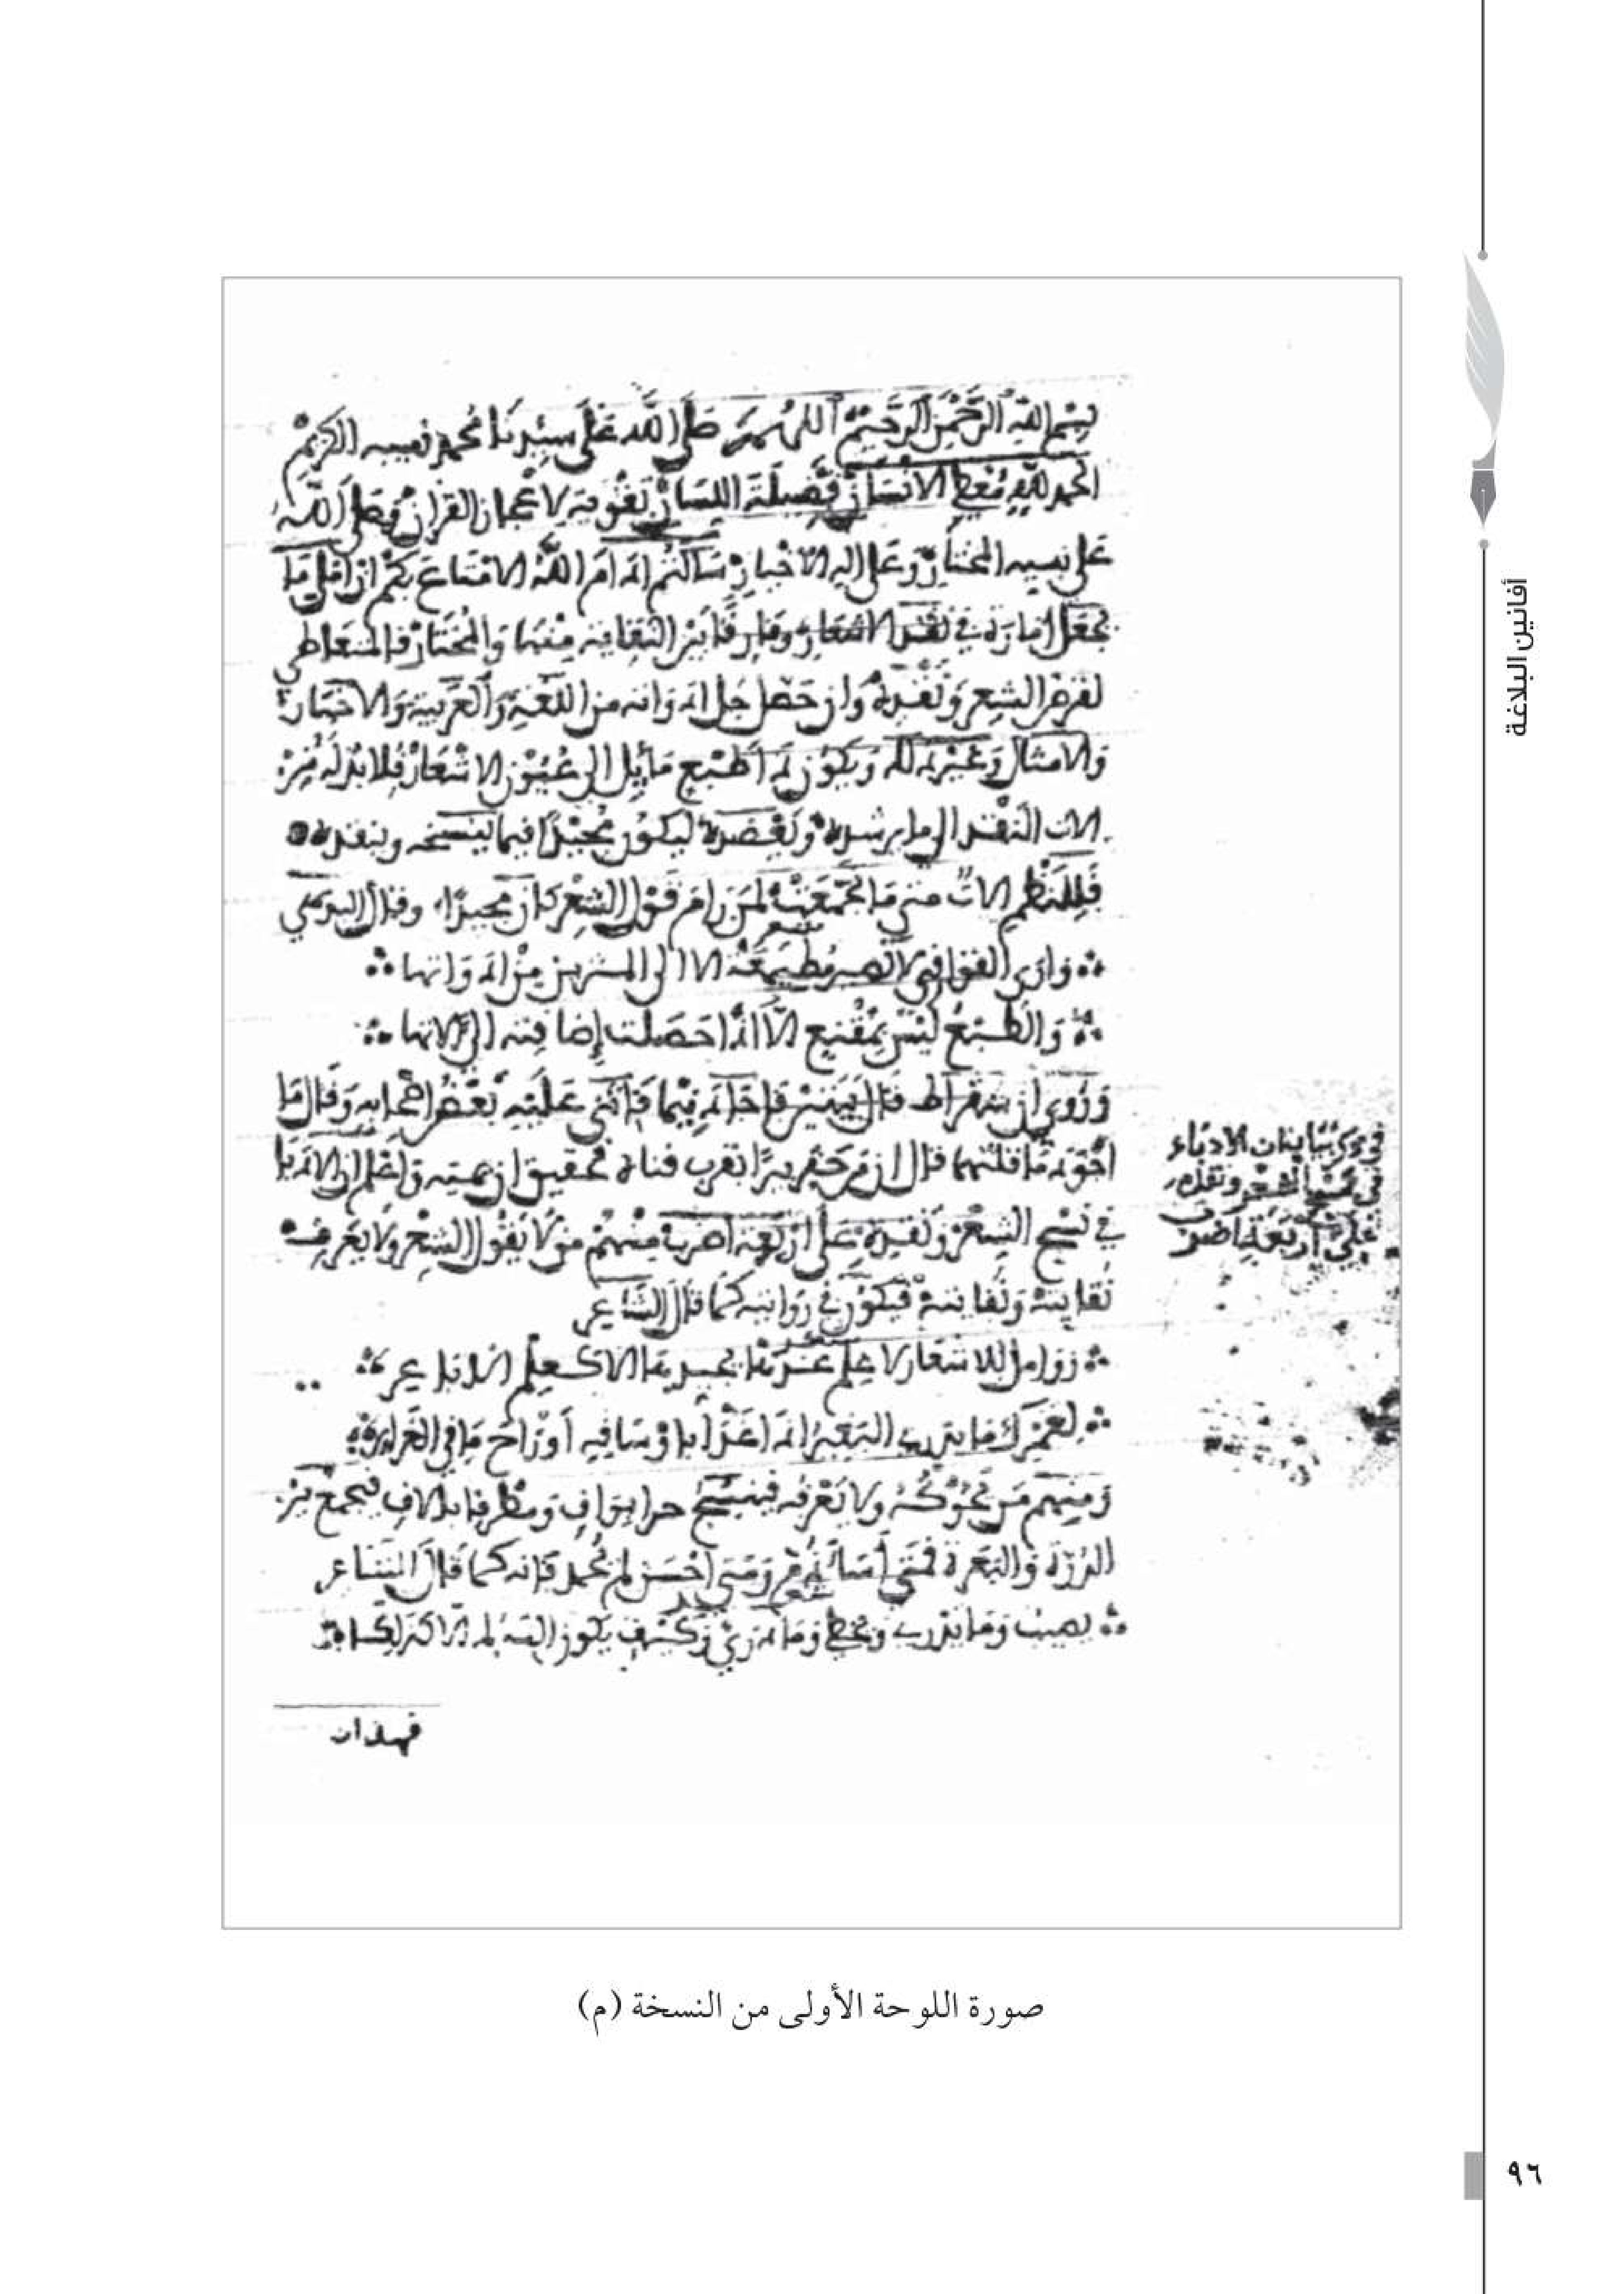 أفانين البلاغة
بسم الله الرحمن الرحيم اللهم صل الله على سيدنا محمد نبيه الكريم
الحمد لله معطي الانسان فضيلة اللسان تقوية لاعجاز القرآن وصلى الله
على نبيه المختار وعلى اله الاخيار سالتم ادام الله الامتاع بكم ان املي ما
يجعل امارة في نقد الاشعار وفارقا بين النفاية منها والمختار فالمتعاطي
لقرض الشعر ونقده وان حصل جل ادواته من اللغة والعربية والاخبار
والامثال وغير ذلك ويكون ذا طبع مائل الى عيون الاشعار فلا بد له من
الات النقد الى ما يرشده ويعضده ليكون مجيدا فيما ينسجه وينقده
فللنظم الات متى ما تجمعت لمن رام قول الشعر كان مجيدا وقال
وارى القوافي لا تصير مطيعة الا الى المثرين من ادواتها
والطبع ليس بمقنع الا اذا حصلت إضافته الى الاتها
وروي ان سقراط قال بيتين فاجاد فيهما فاثنى عليه بعض اصحابه وقال ما
اجود ما قلتهما فقال ان من حفر بيرا بقرب قناة فحقيق
في نسج الشعر ونقده على اربعة اضرب منهم من لا يقول الشعر ولا يعرف
نقايته ونفايته فيكون في روايته كما قال الشاعر
شعر
زوامل للاشعار لا علم عندها بجيدها الا كعلم الاباعر
لعمرك ما يدري البعير اذا غدا باوساقه أو راح ما في الغرائر
ومنهم من يحوكه ولا يعرفه فينسج بواف ومطرفا بالاف فيجمع بين
الدرة والبعرة فمتى أساء لم يذم ومتى احسن لم يحمد فانه كما قال الشاعر
شعر
يصيب وما يدري ويخطي وما درى وكيف يكون الا كذلكا
في ذكر تباين الادباء
في نسج الشعر ونقده
على أربعة اضرب
فهذان
صورة اللوحة الأولى من النسخة (م)
٩٦